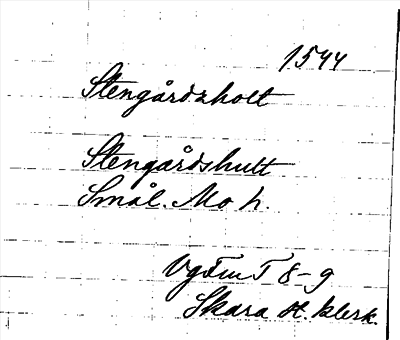 1544
Stengårdzholt
Stengårdshult
Smål. Mo h.
VgFmT 8-9
Skara st. klerk.